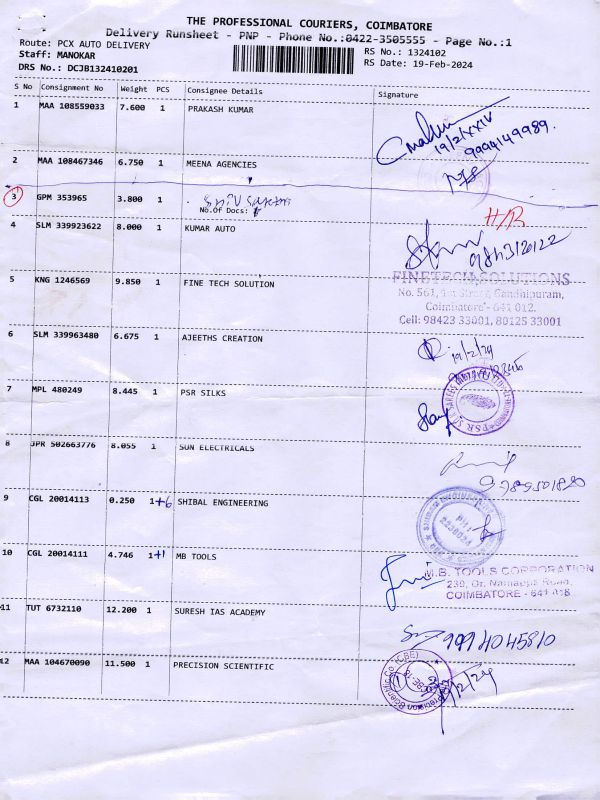 THE PROFESSIONAL COURIERS, COIMBATORE
Delivery Runsheet - PNP - Phone No.:0422-3505555 - Page No.:1
Route: PCX AUTO DELIVERY RS No.: 1324102
Staff: MANOKAR RS Date: 19-Feb-2024
DRS No.: DCJB132410201
S No Consignment No Weight PCS Consignee Details Signature
1 MAA 108559033 7.600 1 PRAKASH KUMAR
19/2/XXIV
9994149989.
2 MAA 108467346 6.750 1 MEENA AGENCIES
3 GPM 353965 3.800 1
No.Of Docs:
H/R
4 SLM 339923622 8.000 1 KUMAR AUTO
5 KNG 1246569 9.850 1 FINE TECH SOLUTION
FINETECH SOLUTIONS
No. 561, 1st Street, Gandhipuram,
Coimbatore - 641 012.
Cell: 98423 33001, 80125 33001
6 SLM 339963480 6.675 1 AJEETHS CREATION
19/2/24
7 MPL 480249 8.445 1 PSR SILKS
8 JPR 502663776 8.055 1 SUN ELECTRICALS
9 CGL 20014113 0.250 1+6 SHIBAL ENGINEERING
10 CGL 20014111 4.746 1+1 MB TOOLS
M.B. TOOLS CORPORATION
COIMBATORE - 641 018
11 TUT 6732110 12.200 1 SURESH IAS ACADEMY
9994045810
12 MAA 104670090 11.500 1 PRECISION SCIENTIFIC